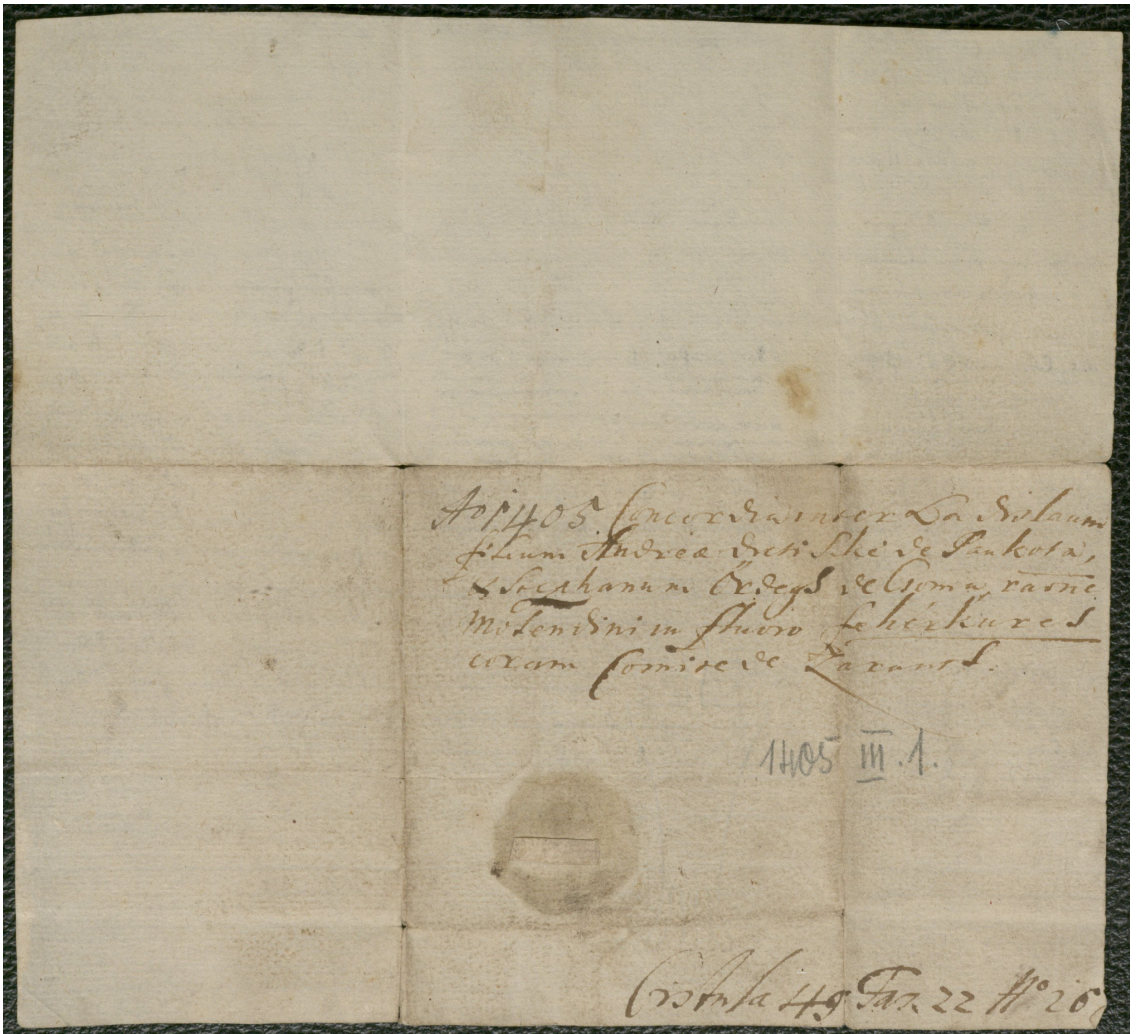 Aō 1405. Concordia inter Ladislaum
filium Andreæ dicti de Pankota,
& Stephanum Ördegh de Csoma, raōne
Molendini in fluvio fehérküres
coram Comite de Zarand.
1405 III. 1.
Cistula 49 Fas. 22 Nº 26